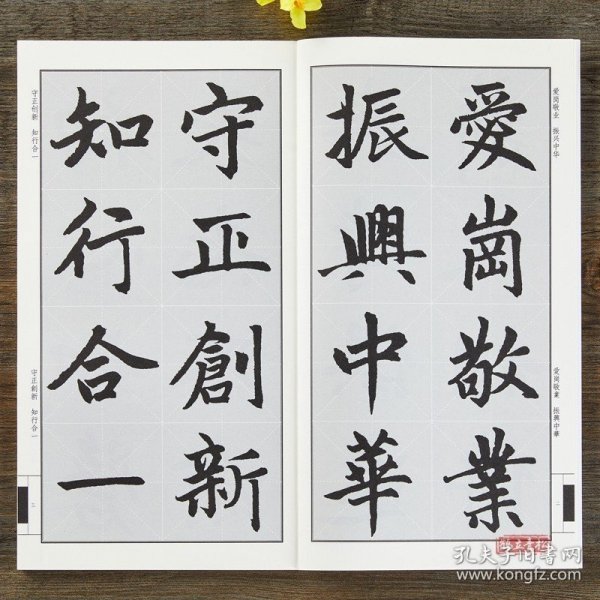 愛崗敬業
振興中華
守正創新
知行合一
爱岗敬业 振兴中华
愛崗敬業 振興中華
守正创新 知行合一
守正創新 知行合一
孔夫子旧书网
www.kongfz.com